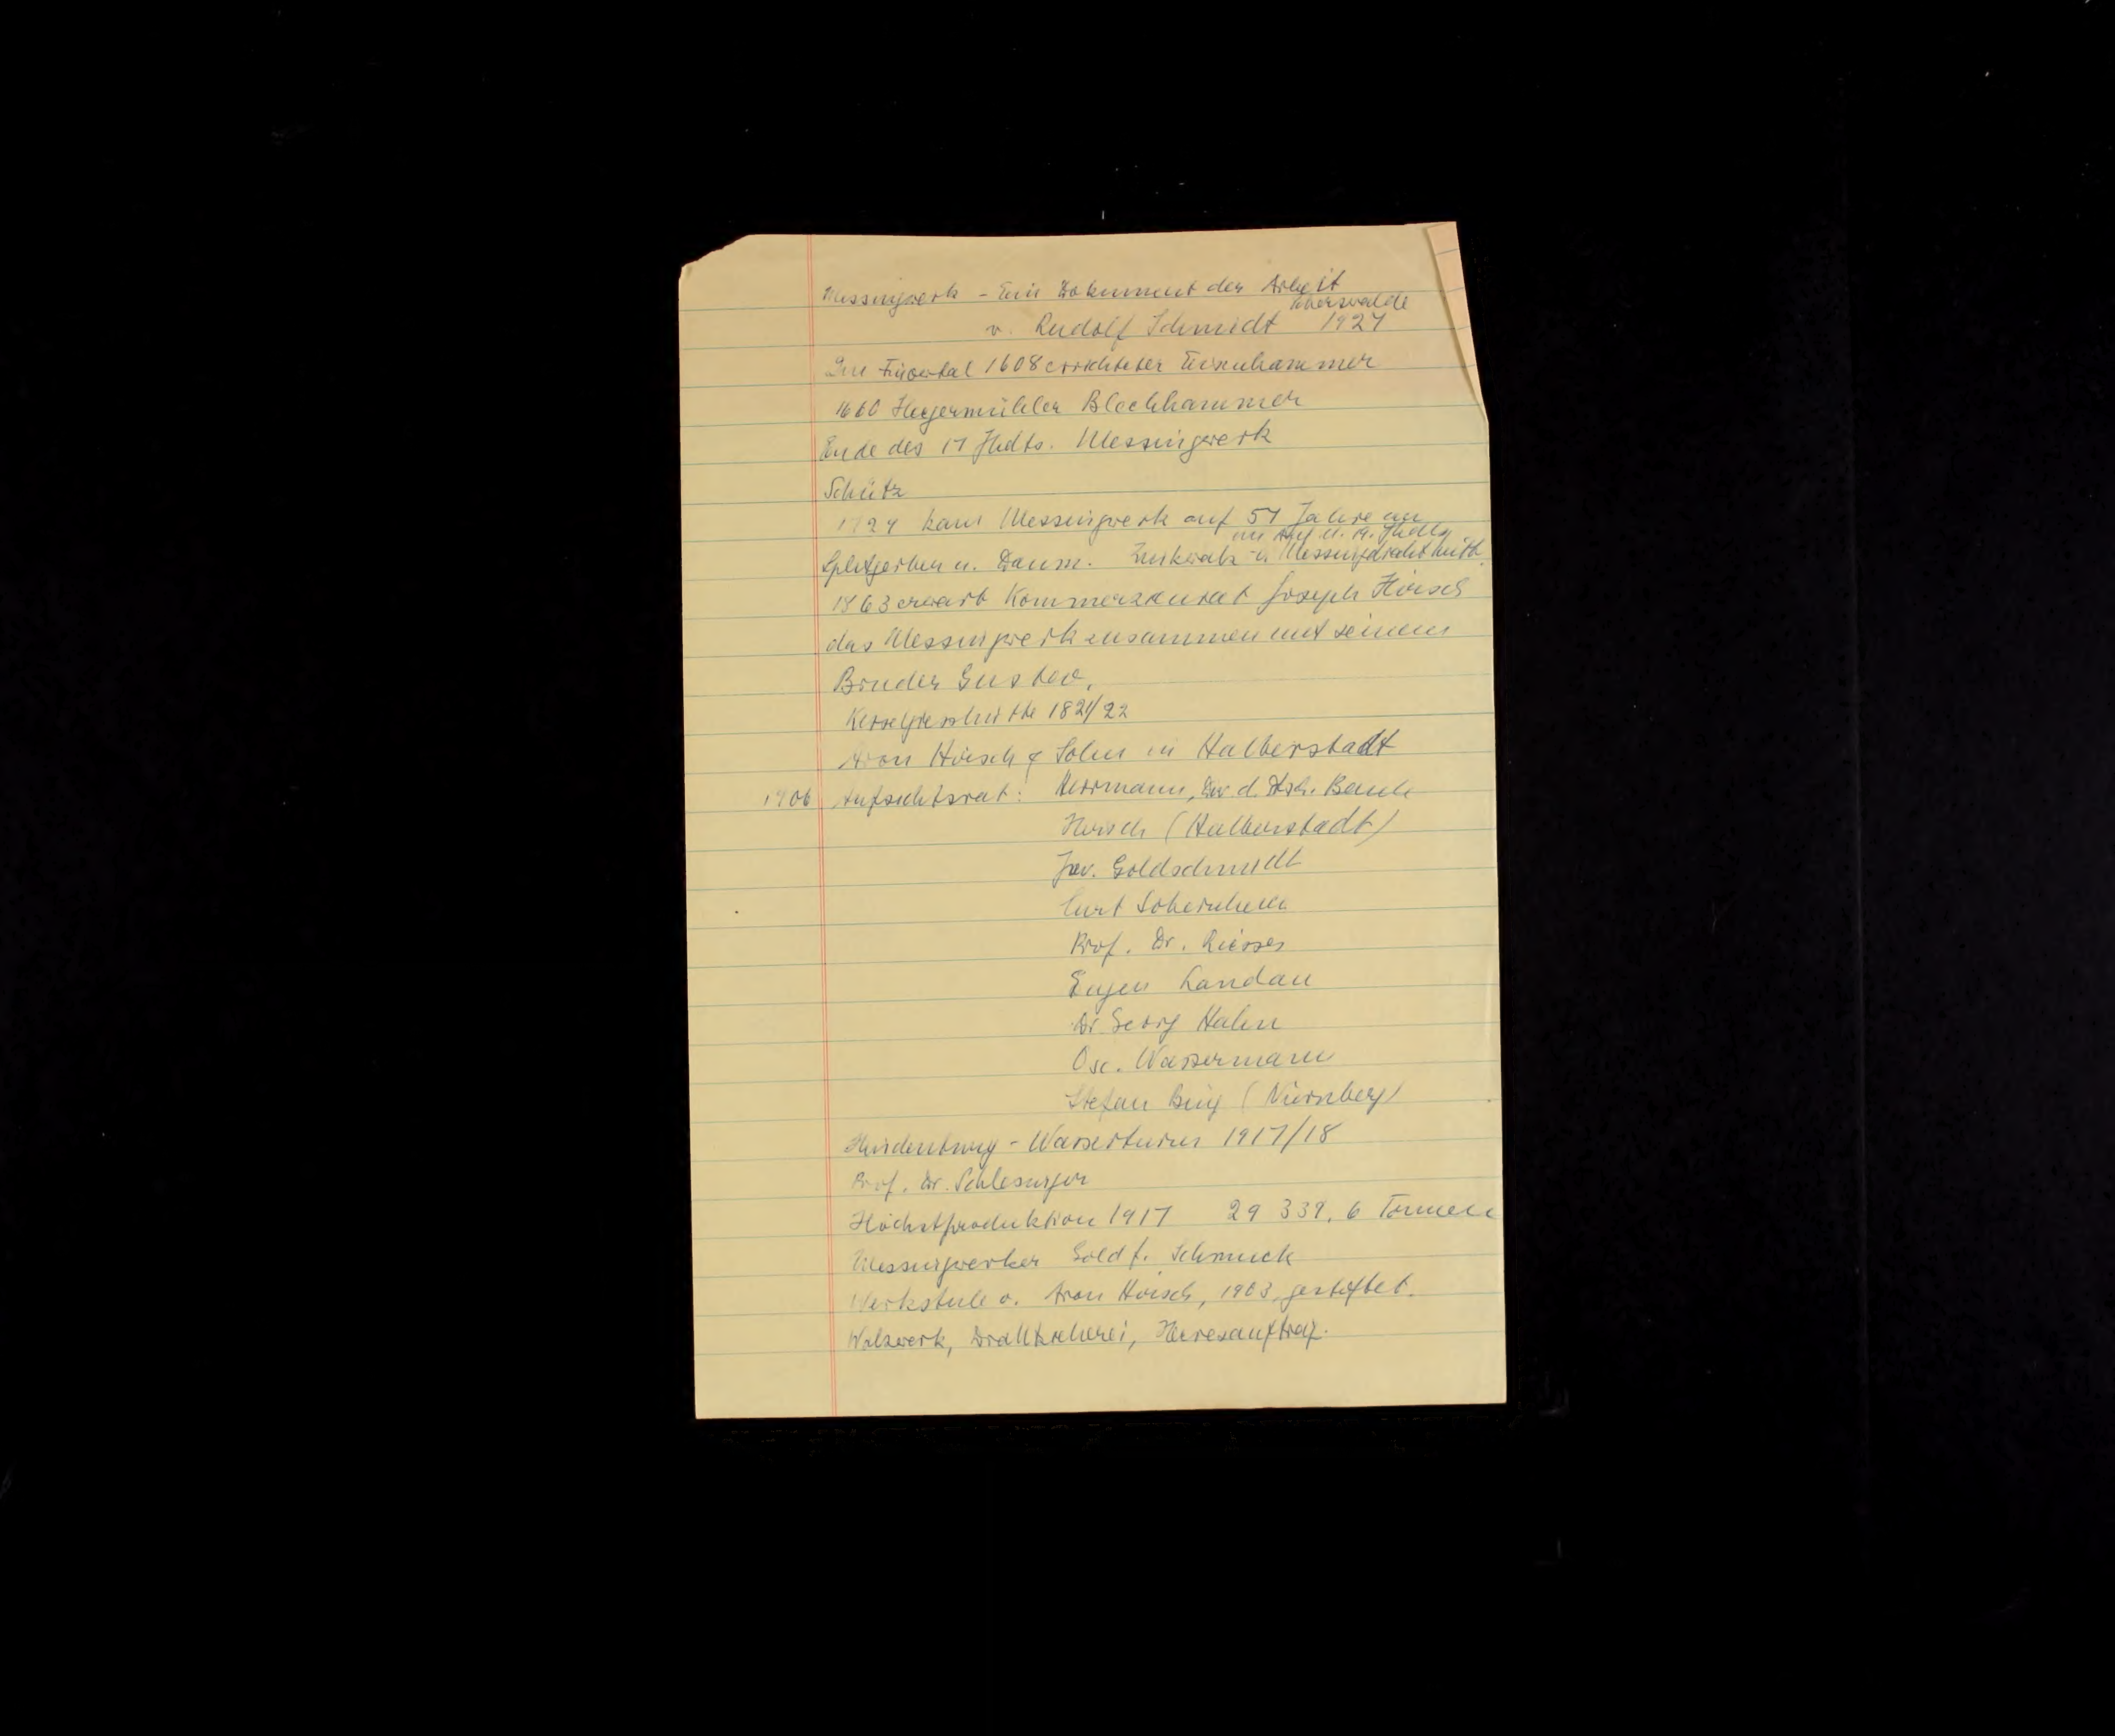 Messingwerk - Ein Dokument der Arbeit
Eberswalde
v. Rudolf Schmidt 1927
Im Finowtal 1608 errichteter Eisenhammer
1660 Heegermühler Blechhammer
Ende des 17 Jhdts. Messingwerk
Schütz
1729 kam Messingwerk auf 57 Jahre an
im 18. u. 19. Jhdts
Splitgerber u. Daum. Zinkwalz- u. Messingdraht
1863 erwarb Kommerzienrat Joseph Hirsch
das Messingwerk zusammen mit seinem
Bruder Gustav,
1821/22
Aron Hirsch & Sohn in Halberstadt
1906 Aufsichtsrat: Herrmann, Dir. d. Dtsch. Bank
Hirsch (Halberstadt)
Jac. Goldschmidt
Curt Sobernheim
Prof. Dr. Riesser
Eugen Landau
Dr Georg Hahn
Osc. Wassermann
Stefan Bing (Nürnberg)
Hindenburg - Wasserturm 1917/18
Prof. Dr. Schlesinger
Höchstproduktion 1917 29 339, 6 Tonnen
Messingwerker Gold f. Schmuck
Werkstule v. Aron Hirsch, 1903, gestiftet.
Walzwerk, Drahtzieherei, Heeresauftrag.